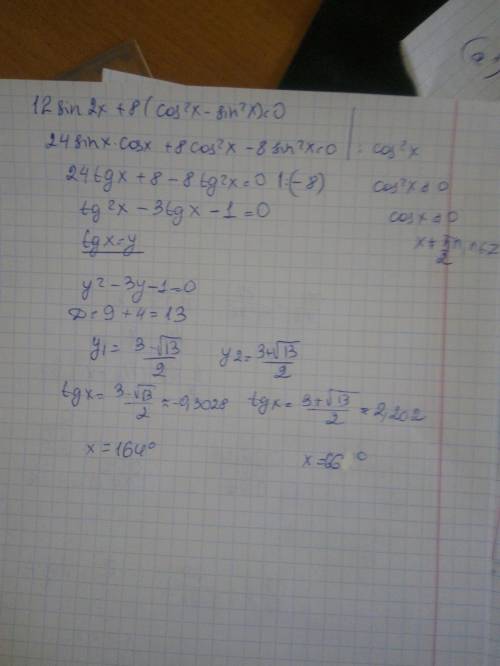 12 sin 2x + 8 (cos²x - sin²x) = 0
24 sinx·cosx + 8 cos²x - 8 sin²x = 0 | : cos²x
24 tgx + 8 - 8 tg²x = 0 |:(-8) cos²x ≠ 0
tg²x - 3tgx - 1 = 0 cosx ≠ 0
tgx = y
y² - 3y - 1 = 0
D = 9 + 4 = 13
y₁ = (3-√13)/2 y₂ = (3+√13)/2
tgx = (3-√13)/2 = -0,3028 tgx = (3+√13)/2 = 2,202
x = 164° x = 66°